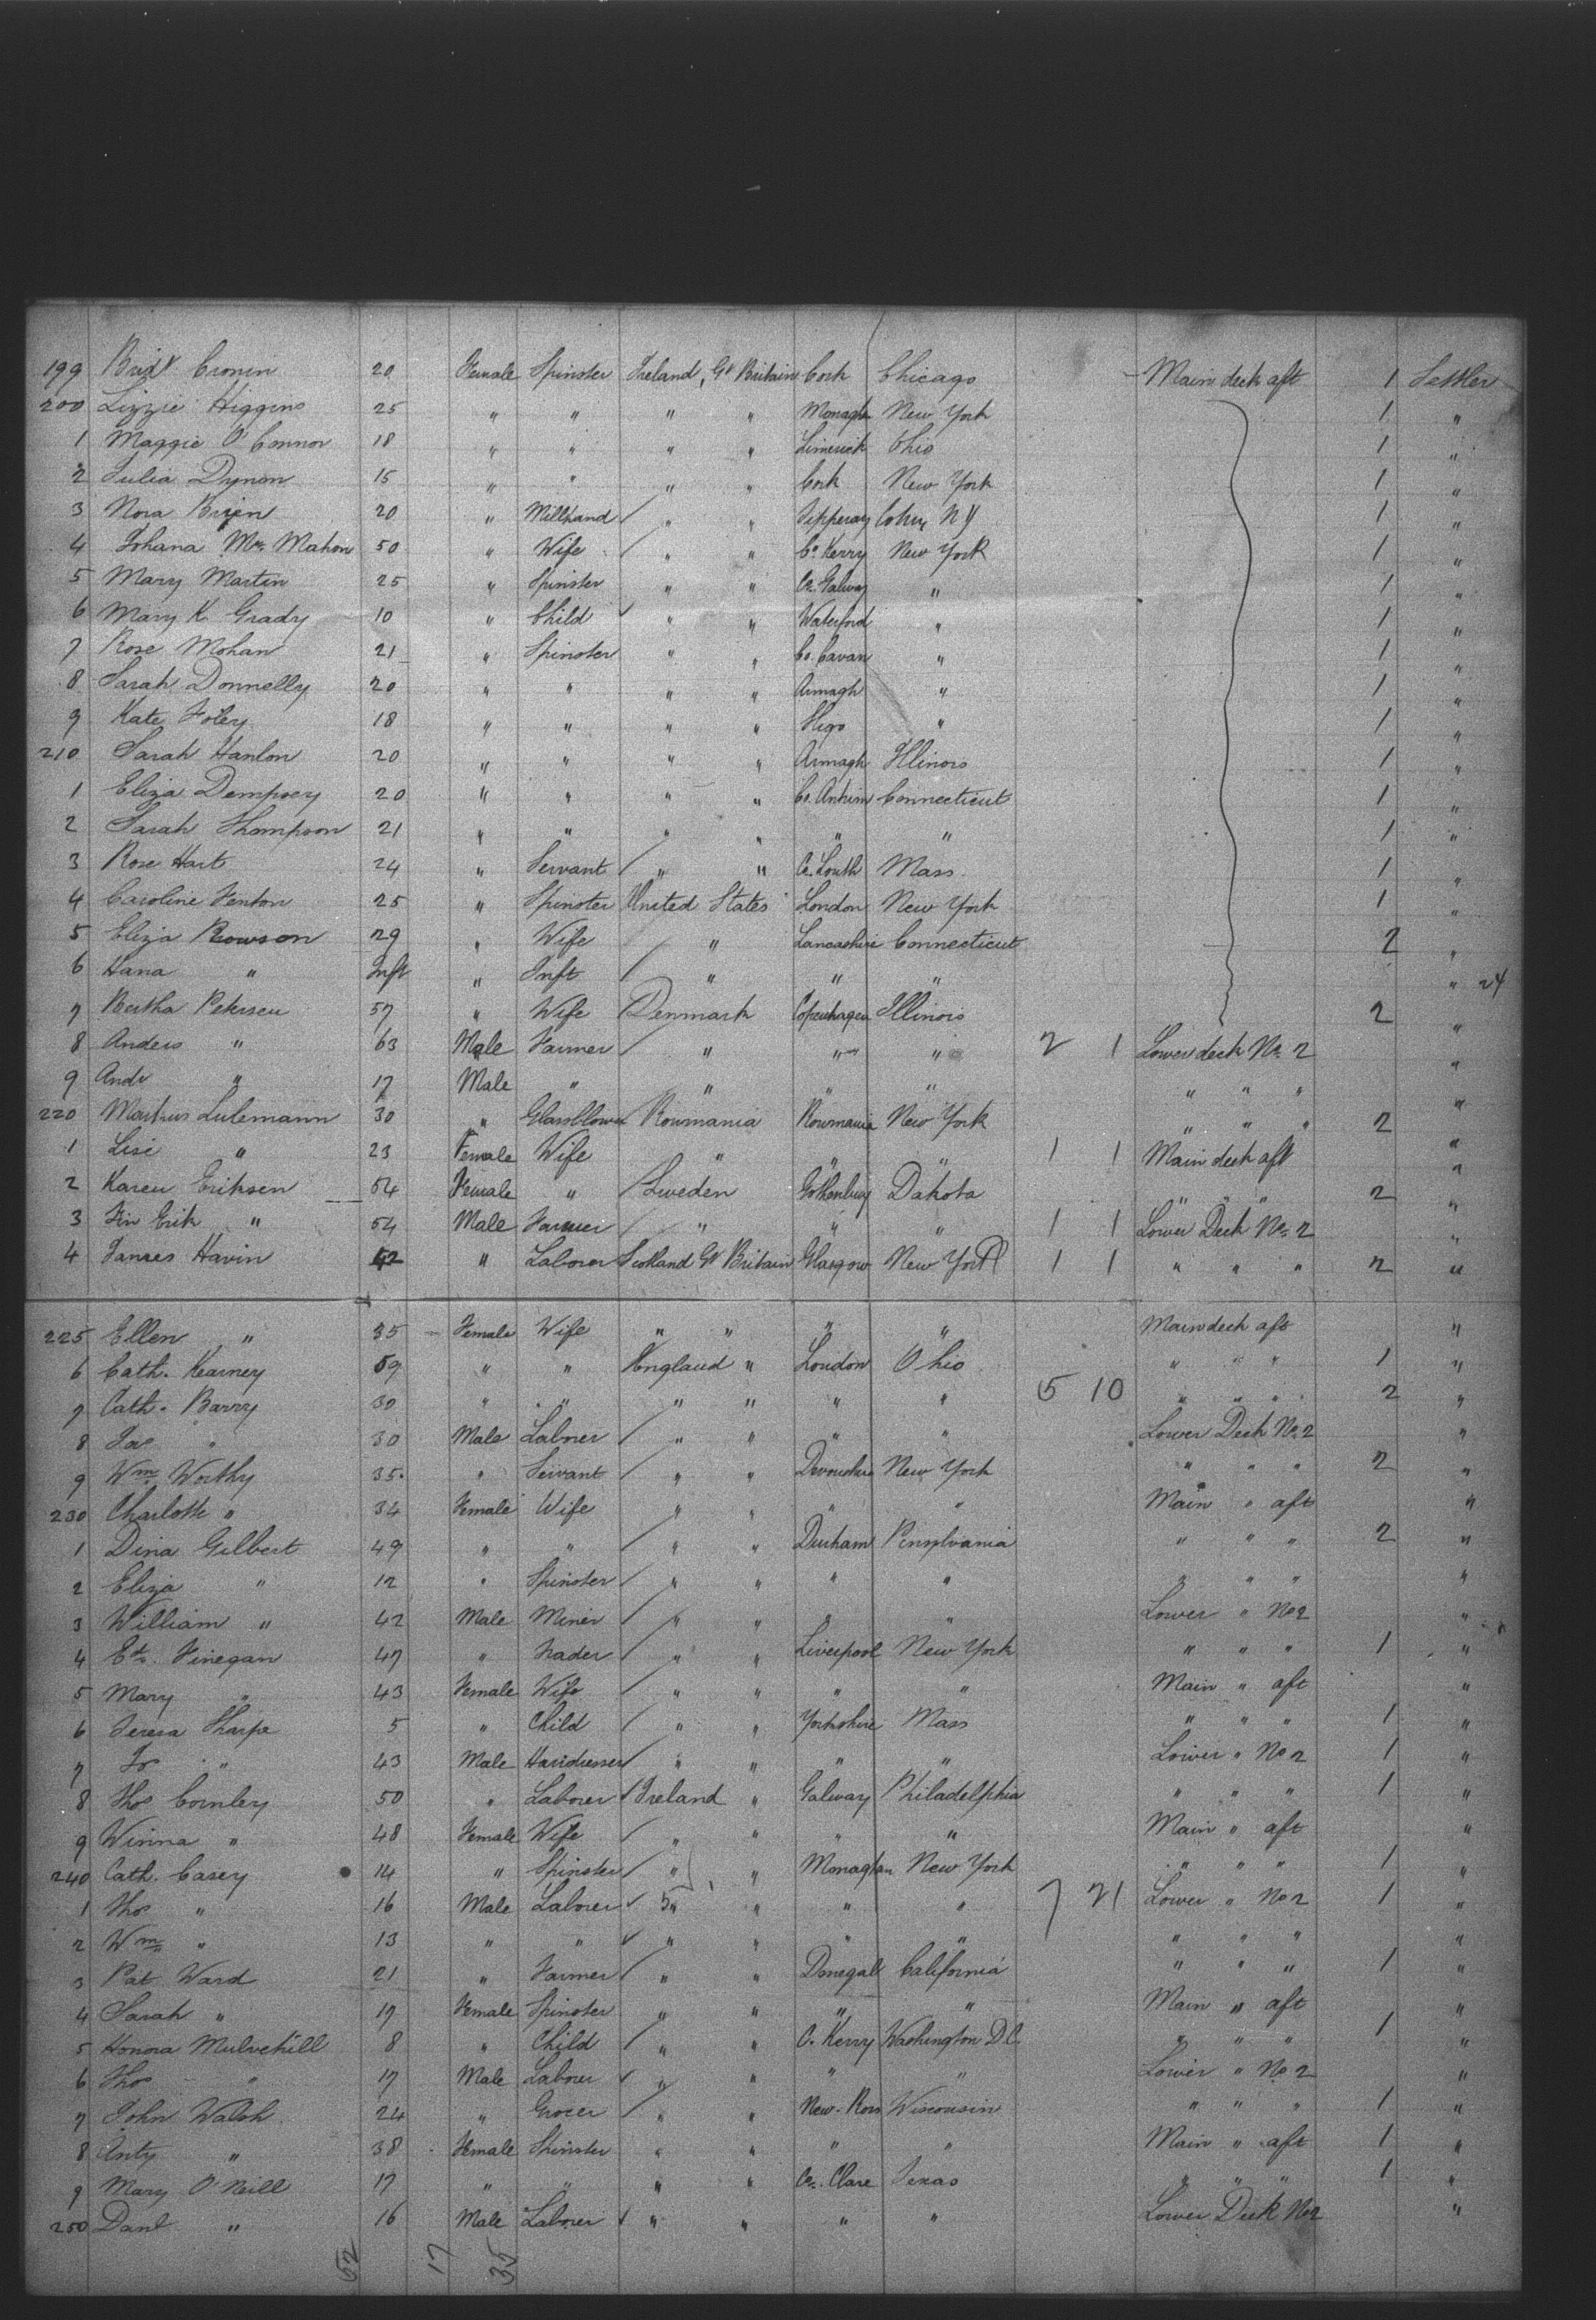 199 Bridt Cronin 20 Female Spinster Ireland, Gt Britain Cork Chicago Main deck aft 1 Settler
200 Lizzie Higgins 25 " " " " Monagh New York 1 "
1 Maggie O'Connor 18 " " " " Limerick Ohio 1 "
2 Julia Dynon 15 " " " " Cork New York 1 "
3 Nora Brien 20 " Millhand / " " Tipperay NY 1 "
4 Johana Mc Mahon 50 " Wife / " " Co Kerry New York 1 "
5 Mary Martin 25 " Spinster " " Co. Galway " 1 "
6 Mary K Grady 10 " Child ✓ " " Waterford " 1 "
7 Rose Mohan 21 " Spinster " " Co. Cavan " 1 "
8 Sarah Donnelly 20 " " " " Armagh " 1 "
9 Kate Foley 18 " " " " Sligo " 1 "
210 Sarah Hanlon 20 " " " " Armagh Illinois 1 "
1 Eliza Dempsey 20 " " " " Co. Antrim Connecticut 1 "
2 Sarah Thompson 21 " " " " " " 1 "
3 Rose Hart 24 " Servant / " " Co. Louth Mass. 1 "
4 Caroline Fenton 25 " Spinster United States London New York 1 "
5 Eliza Rowson 29 " Wife / " Lancashire Connecticut 2 "
6 Hana " Inft " Inft / " " " " 24
7 Bertha Petersen 57 " Wife Denmark Copenhagen Illinois 2 "
8 Anders " 63 Male Farmer / " " " 2 1 Lower deck No. 2 "
9 Andr " 17 Male " " " " " " " "
220 Lulemann 30 " Glassblower Roumania Roumania New York " " " 2 "
1 Lisi " 23 Female Wife " " " 1 1 Main deck aft "
2 Karen Eriksen 54 Female " / Sweden Gothenburg Dakota " " " 2 "
3 Erik " 54 Male Farmer / " " " 1 1 Lower Deck No. 2 "
4 James Havin 42 " Laborer Scotland Gt Britain Glasgow New York 1 1 " " " 2 "
225 Ellen " 35 Female Wife " " " " Main deck aft "
6 Cath. Kearney 59 " " England " London Ohio " " " 1 "
7 Cath. Barry 30 " " " " " " 5 10 " " " 2 "
8 Jas " 30 Male Laborer / " " " " Lower Deck No. 2 "
9 Wm Worthy 35 " Servant / " " Devonshire New York " " " 2 "
230 Charlotte " 34 Female Wife " " " " Main " aft "
1 Dina Gilbert 49 " " / " " Durham Pensylvania " " " 2 "
2 Eliza " 12 " Spinster / " " " " " " " "
3 William " 42 Male Miner / " " " " Lower " No 2 "
4 Finegan 47 " Trader / " " Liverpool New York " " " 1 "
5 Mary " 43 Female Wife / " " " " Main " aft "
6 Teresa Sharpe 5 " Child / " " Yorkshire Mass " " " 1 "
7 Jos " 43 Male Hairdresser / " " " " Lower " No 2 1 "
8 Thos Comley 50 " Laborer / Ireland " Galway Philadelphia " " " 1 "
9 Winna " 48 Female Wife / " " " " Main " aft "
240 Cath. Casey 14 " Spinster / " " Monaghan New York " " " 1 "
1 Thos " 16 Male Laborer ✓ 5 " " " " 7 21 Lower " No 2 1 "
2 Wm " 13 " " ✓ " " " " " " " "
3 Pat Ward 21 " Farmer / " " Donegall California " " " 1 "
4 Sarah " 17 Female Spinster " " " " Main " aft "
5 Honora Mulvehill 8 " Child / " " C. Kerry Washington D.C. " " " 1 "
6 Thos " 17 Male Laborer ✓ " " " " Lower " No 2 "
7 John Walsh 24 " Grocer / " " New. Ross Wisconsin " " " 1 "
8 Anty " 38 Female Spinster " " " " Main " aft 1 "
9 Mary O'Neill 17 " " " " Co. Clare Texas " " " 1 "
250 Danl " 16 Male Laborer ✓ " " " " Lower Deck No 2 "
52 17 35